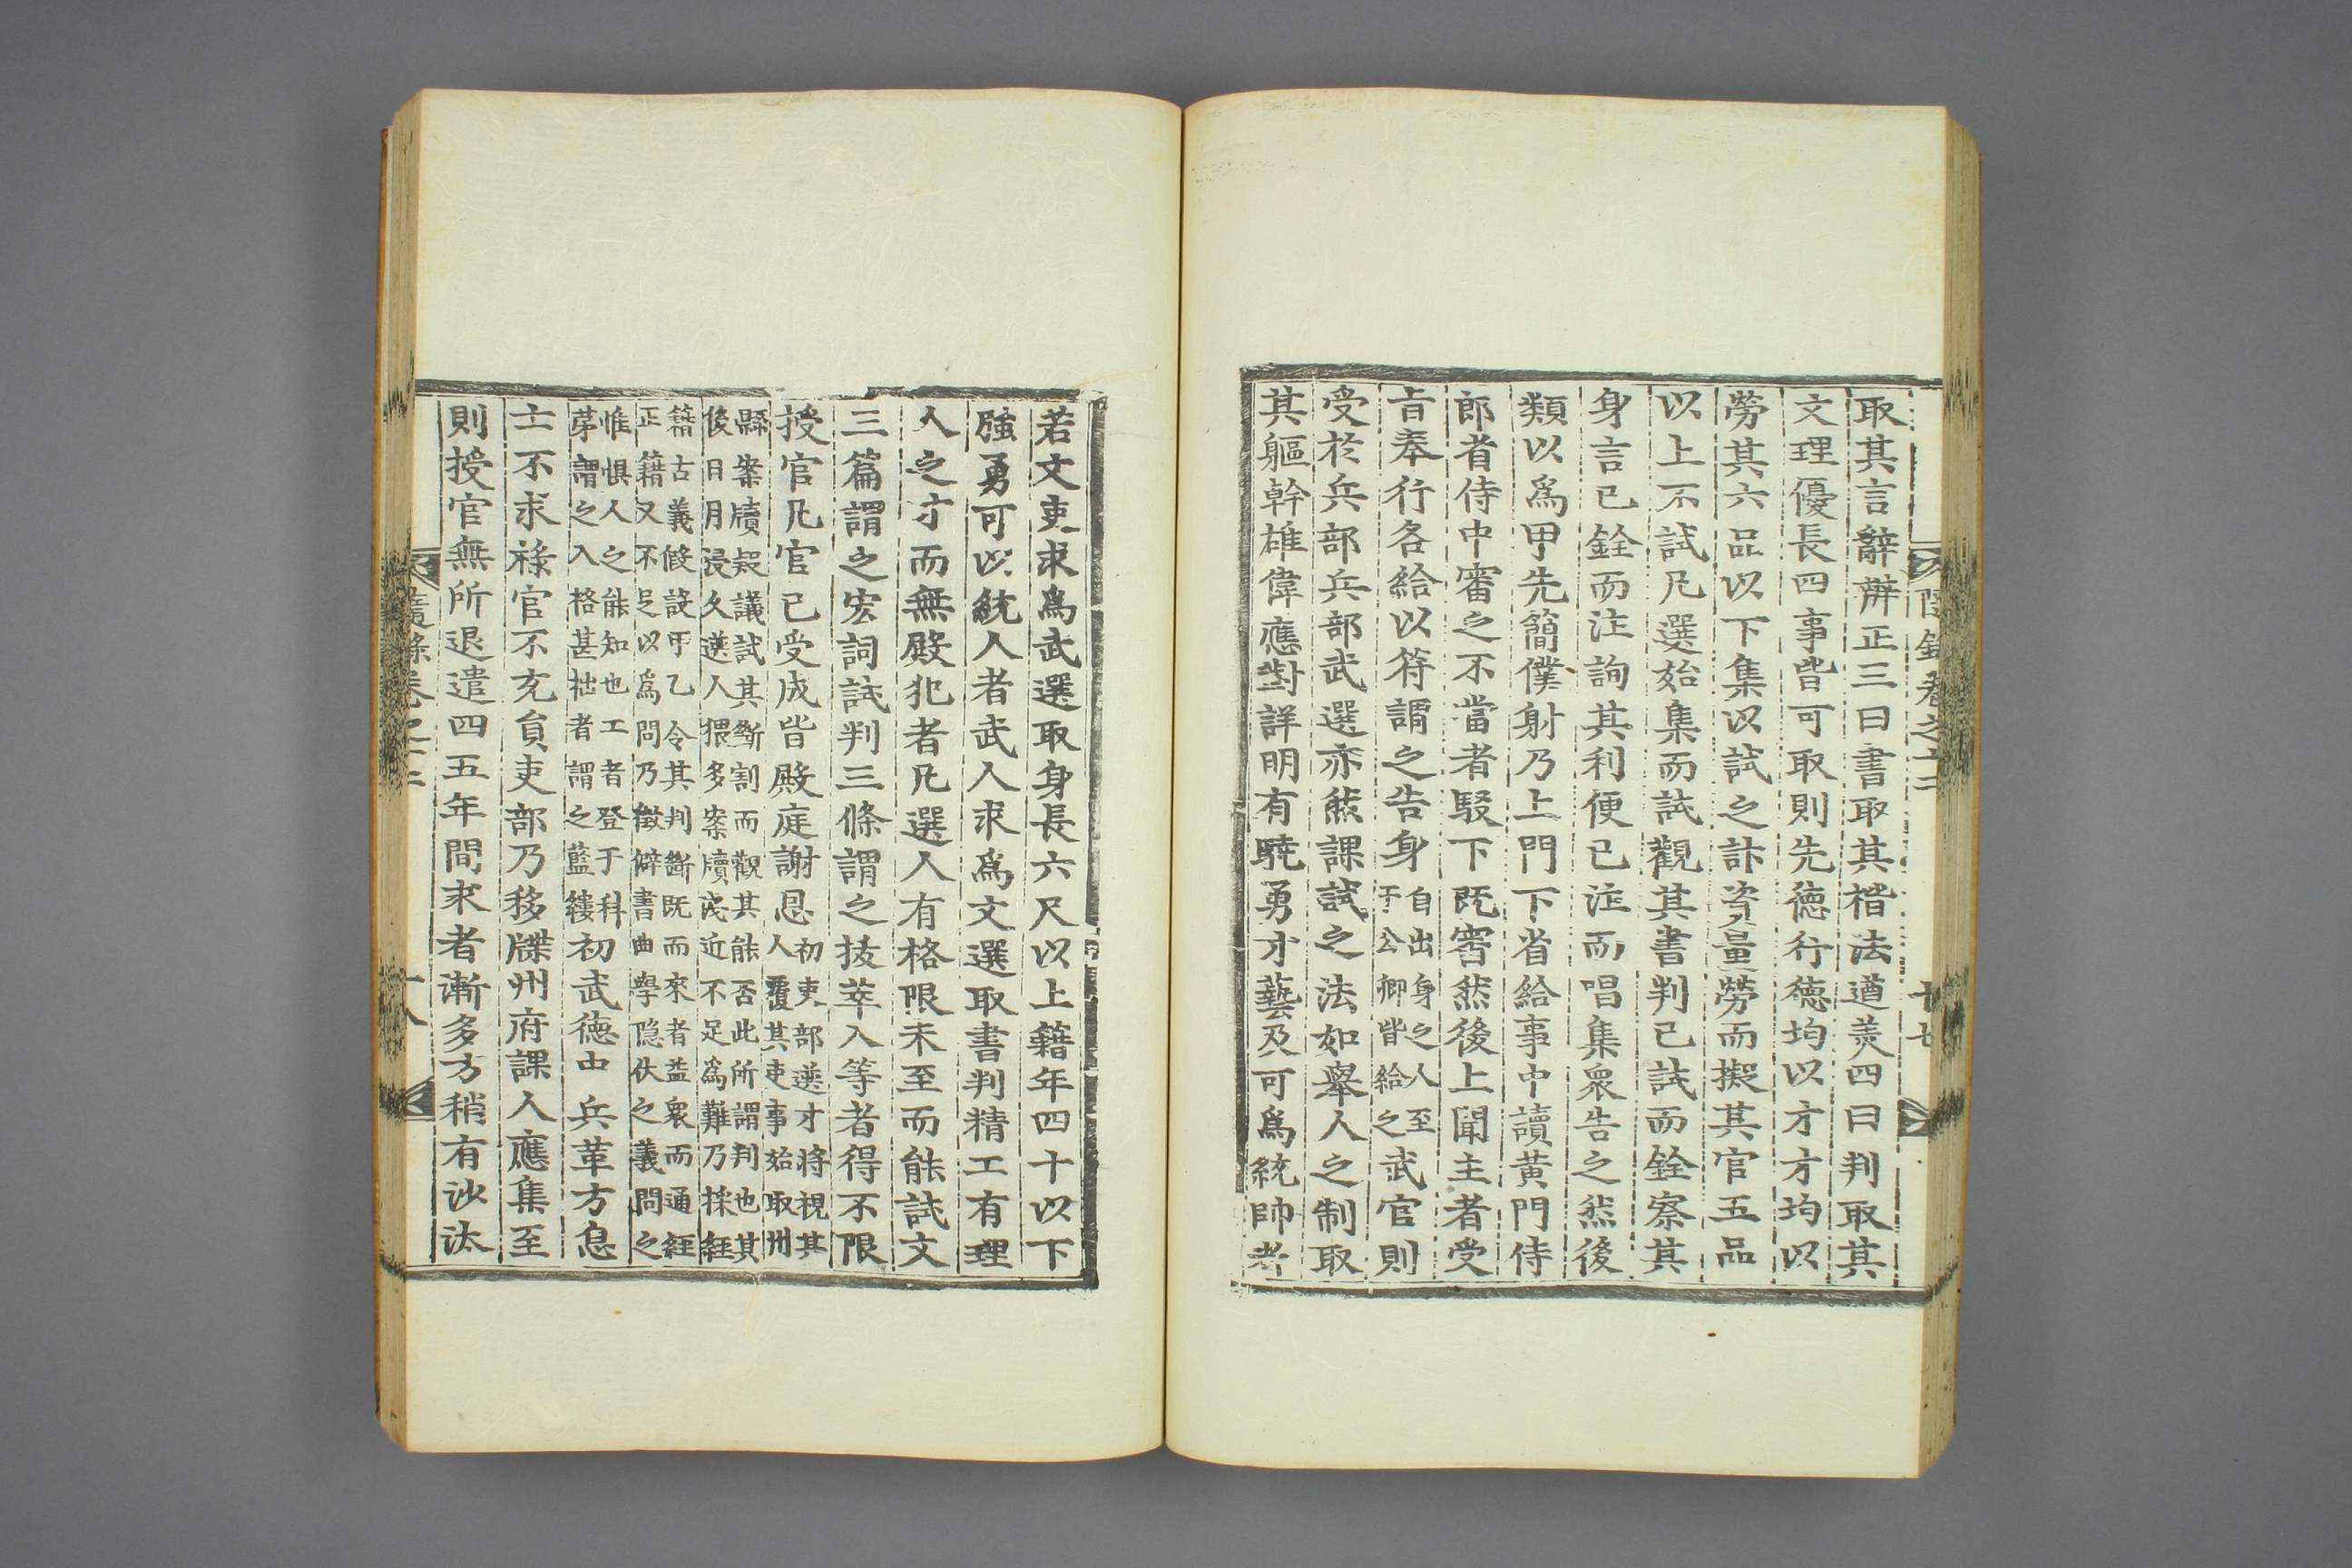 取其言辭辨正三曰書取其楷法遒美四曰判取其
文理優長四事皆可取則先德行德均以才才均以
勞其六品以下集以試之計資量勞而擬其官五品
以上不試凡選始集而試觀其書判已試而銓察其
身言已銓而注詢其利便已注而唱集衆告之然後
類以爲甲先簡僕射乃上門下省給事中讀黃門侍
郎省侍中審之不當者駁下旣審然後上聞主者受
旨奉行各給以符謂之告身自出身之人至于公卿皆給之武官則
受於兵部兵部武選亦然課試之法如舉人之制取
其軀幹雄偉應對詳明有驍勇才藝及可爲統帥者
隨錄卷之十二
十七
若文吏求爲武選取身長六尺以上籍年四十以下
强勇可以統人者武人求爲文選取書判精工有理
人之才而無殿犯者凡選人有格限未至而能試文
三篇謂之宏詞試判三條謂之拔萃入等者得不限
授官凡官已受成皆殿庭謝恩初吏部選才將視其人覆其吏事始取州
縣案牘疑議試其斷割而觀其能否此所謂判也其
後日月浸久選人猥多案牘淺近不足爲難乃採經
籍古義假設甲乙令其判斷旣而來者益衆而通經
正籍又不足以爲問乃徵僻書曲學隱伏之義問之
惟懼人之能知也工者登于科茅謂之入格甚拙者謂之藍縷初武德中兵革方息
士不求祿官不充負吏部乃移牒州府課人應集至
則授官無所退遣四五年間求者漸多方稍有沙汰
隨錄卷之十二
十八